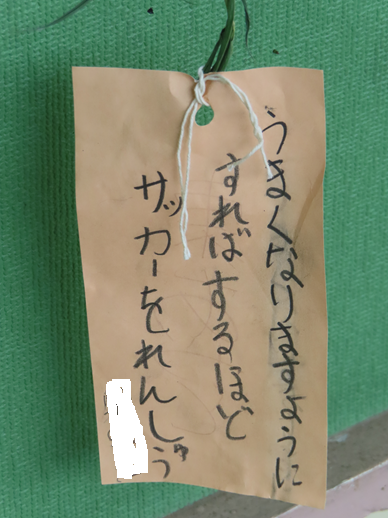 サッカーをれんしゅう
すればするほど
うまくなりますように